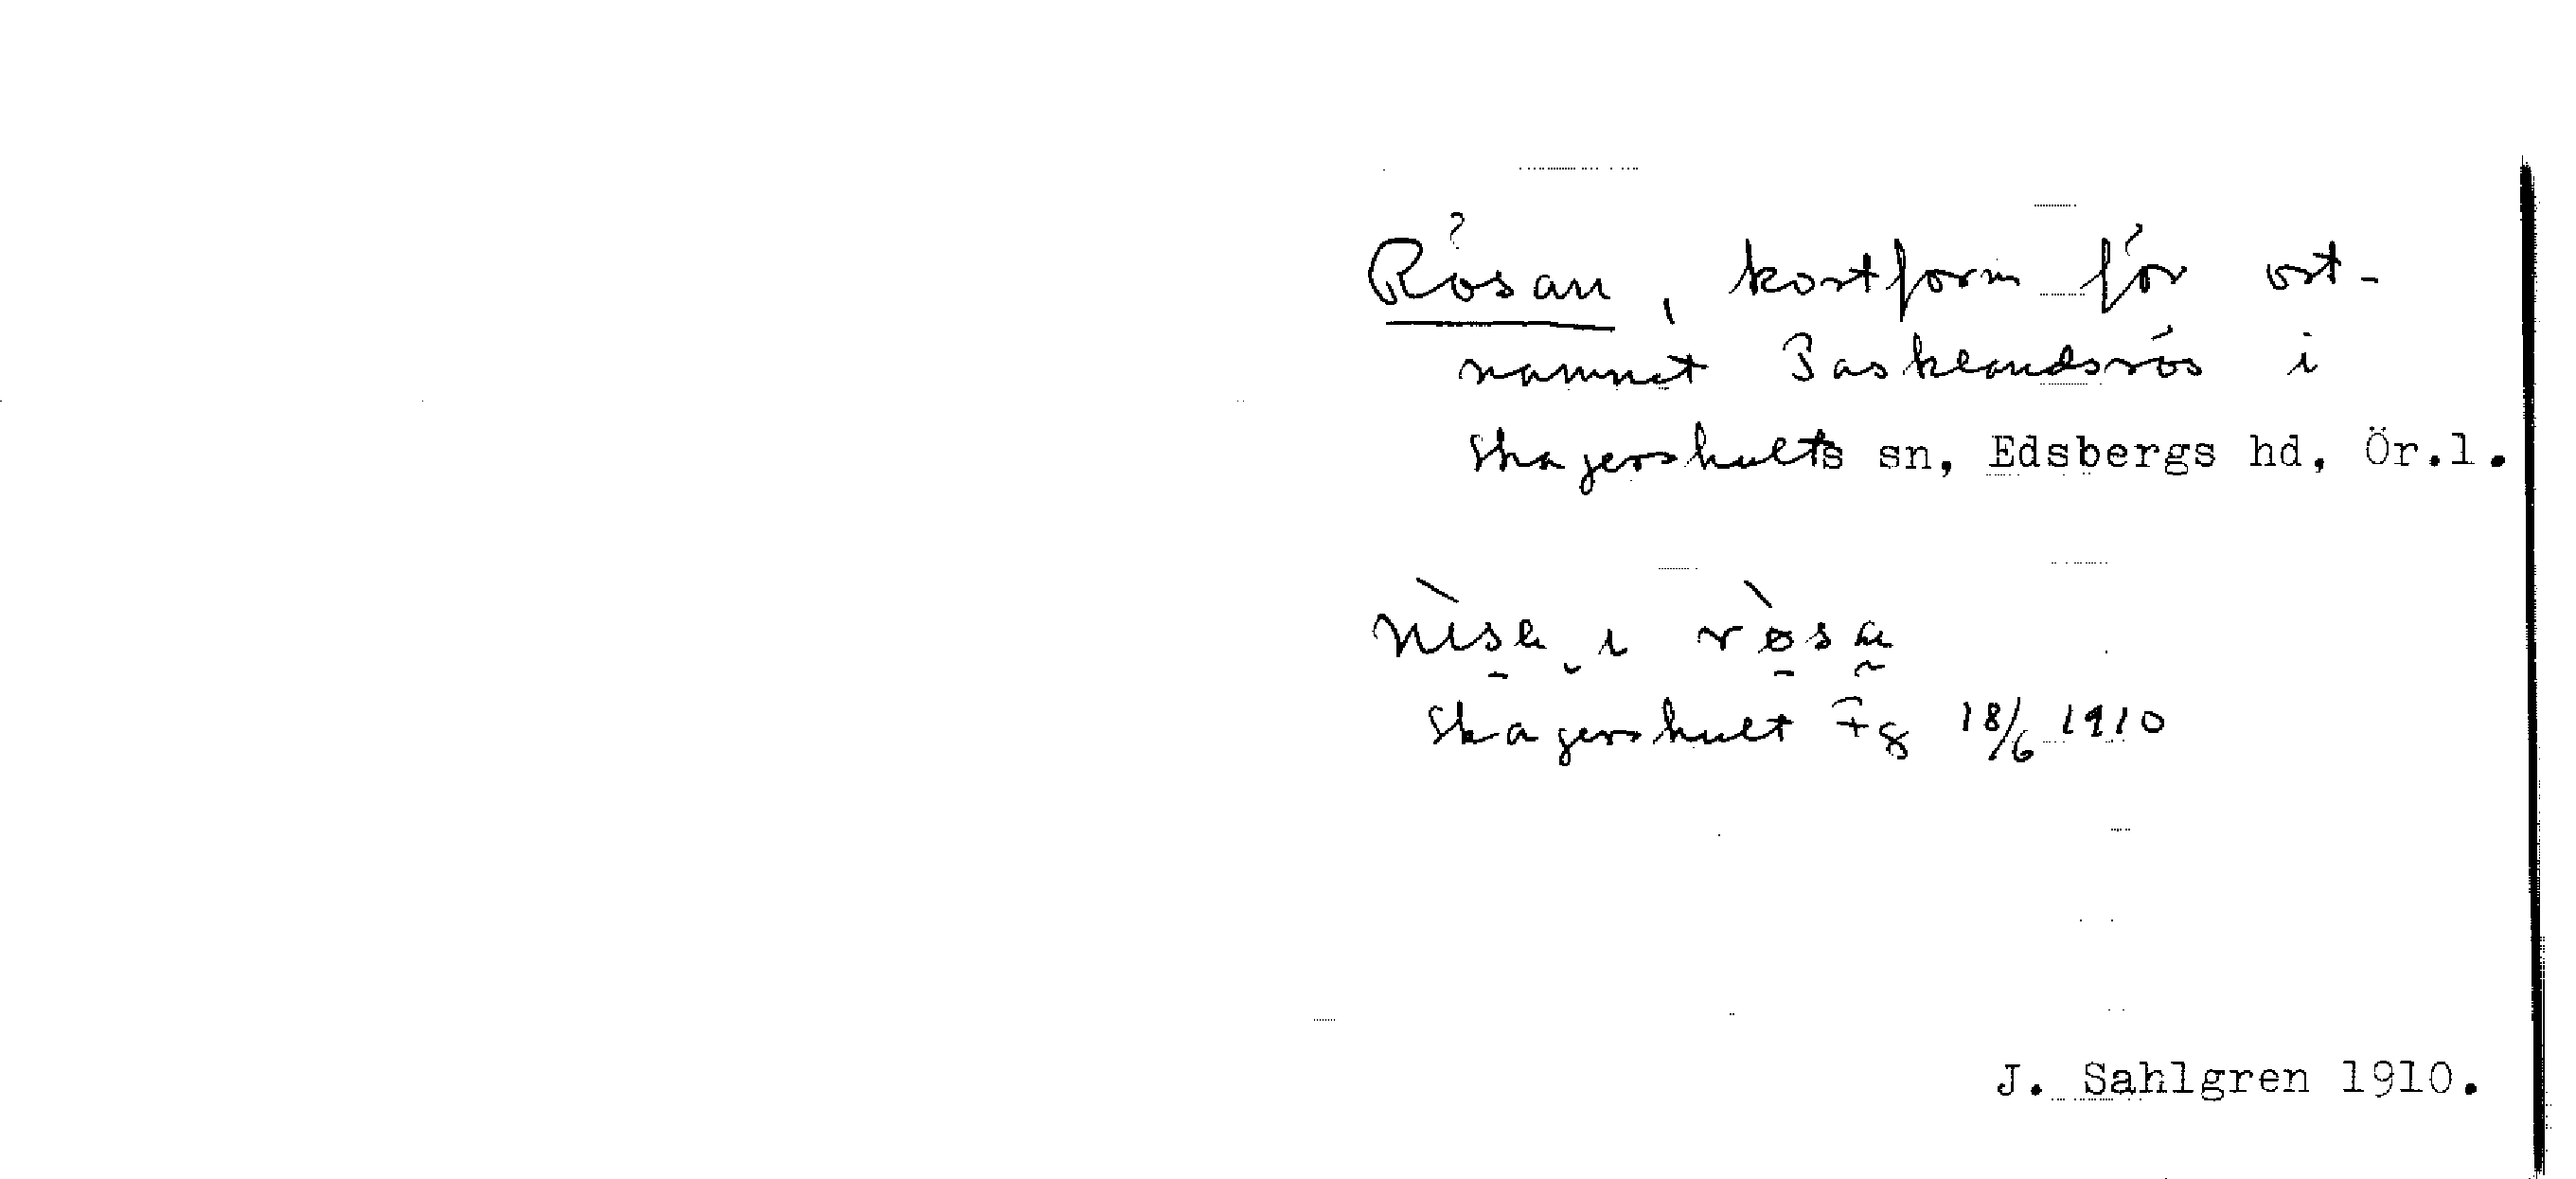 Rösan, kortform för ort-
namnet Basklandsrös i
Skagershults sn, Edsbergs hd, Ör.l.
i rösa
Skagershult Fg 18/6 1910
J. Sahlgren 1910.